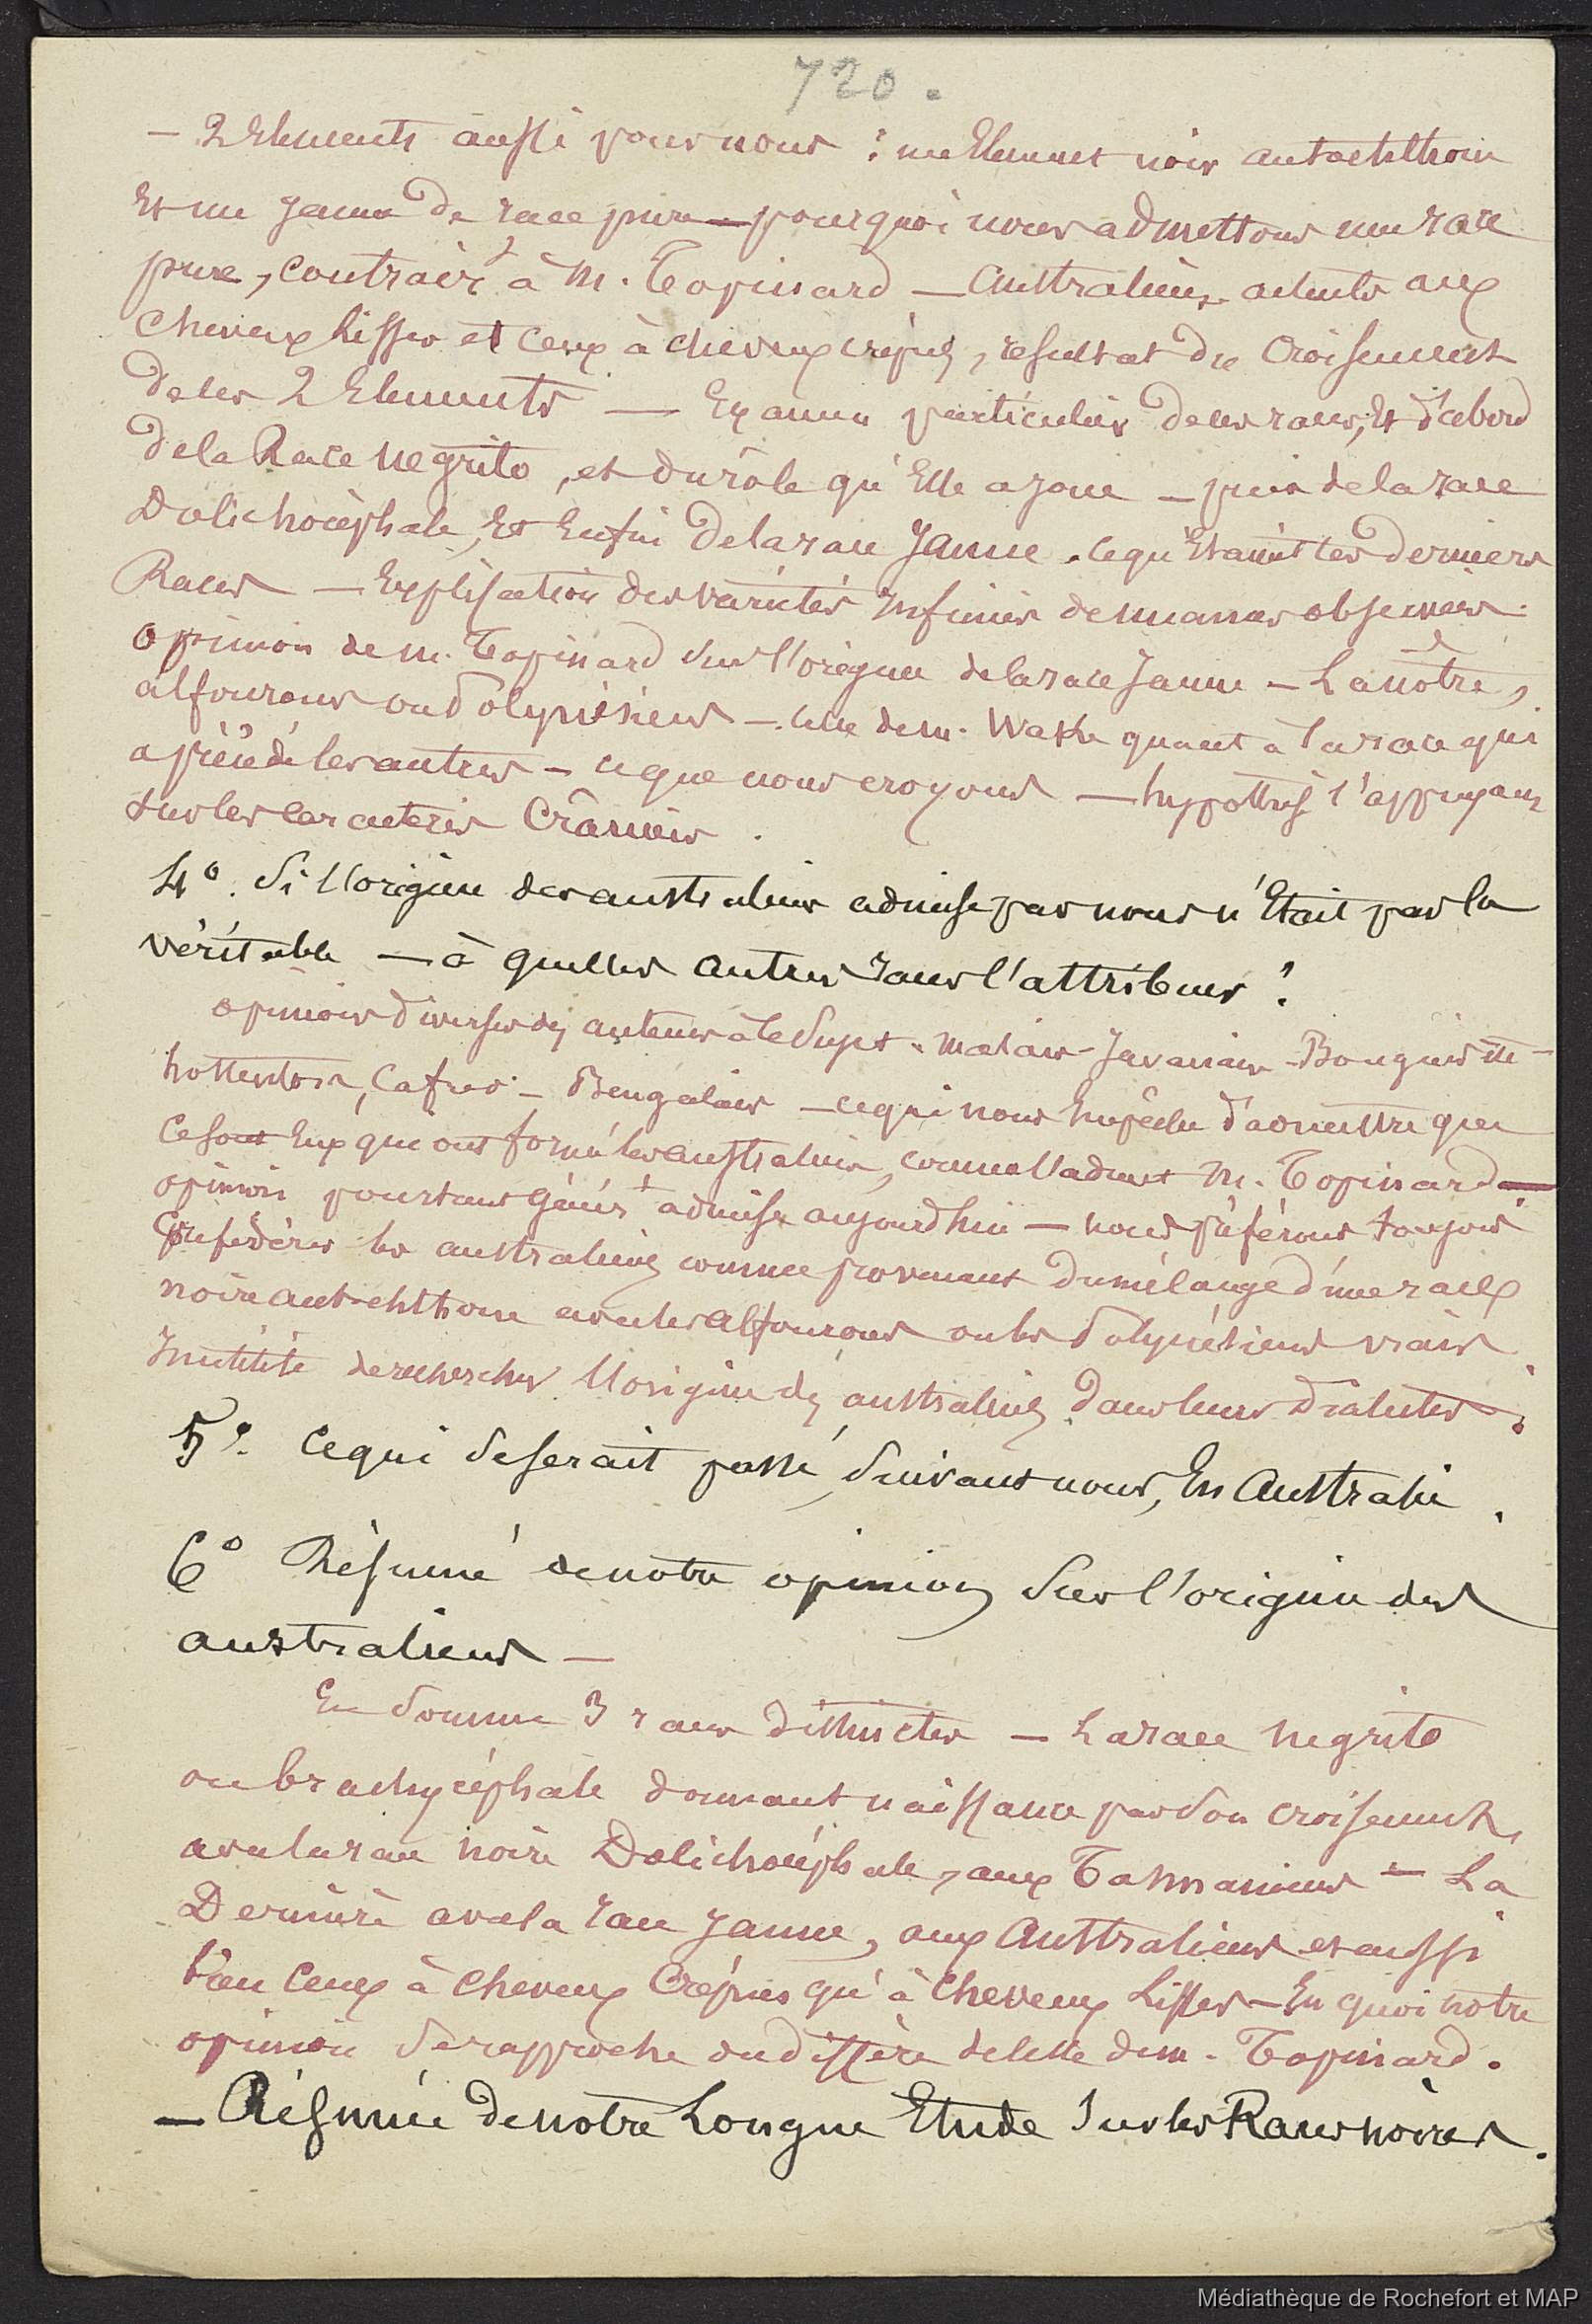 720.
— 2 Elements aussi pour nous : un Element noir autochthone
Et un jaune de race pure — pourquoi nous admettons une race
pure, contrairt à M. Topinard — Australiens actuels aux
cheveux lisses et ceux à cheveux crépus, resultat du croisement
de ces 2 Elements — Examen particulier de ces races, Et d'abord
de la Race Negrito, et du rôle qu'Elle a joué — puis de la race
Dolichocéphale, Et Enfin de la race Jaune. ce qu'Etaient ces dernieres
Races — Explication des variétés infinies de nuances observées.
opinion de M. Topinard sur l'origine de la race Jaune — La nôtre,
alfourous ou Polynésiens — celle de M. Wake quant à la race qui
a précédé les autres — ce que nous croyons — hypothese s'appuyant
sur les caracteres Crâniens.
4° Si l'origine des australiens admise par nous n'Etait pas la
véritable — à quelles autres races l'attribuer ?
opinions diverses des auteurs à ce Sujet. malais - Javanais - Bouguis etc -
hottentots, Cafres - Bengalais — ce qui nous Empêche d'admettre que
ce sont Eux qui ont formé les australiens, comme l'admet M. Topinard —
opinion pourtant génért admise aujourd'hui — nous préférons toujours
considérer les australiens comme provenant du mélange d'une race
noire autochthone avec les alfourous ou les Polynésiens vrais.
Inutilité de rechercher l'origine des australiens dans leurs Dialectes.
5° Ce qui se serait passé, suivant nous, En Australie.
6° Résumé de notre opinion sur l'origine des
australiens —
En somme 3 races distinctes — La race negrito
ou brachycéphale donnant naissance par son croisement,
avec la race noire Dolichocéphale, aux Tasmaniens — La
Dernière avec la race jaune, aux Australiens et aussi
bien ceux à cheveux Crépus qu'à cheveux Lisses — En quoi notre
opinion se rapproche ou diffère de celle de M. Topinard.
— Résumé de notre Longue Etude sur les Races noires.
Médiathèque de Rochefort et MAP